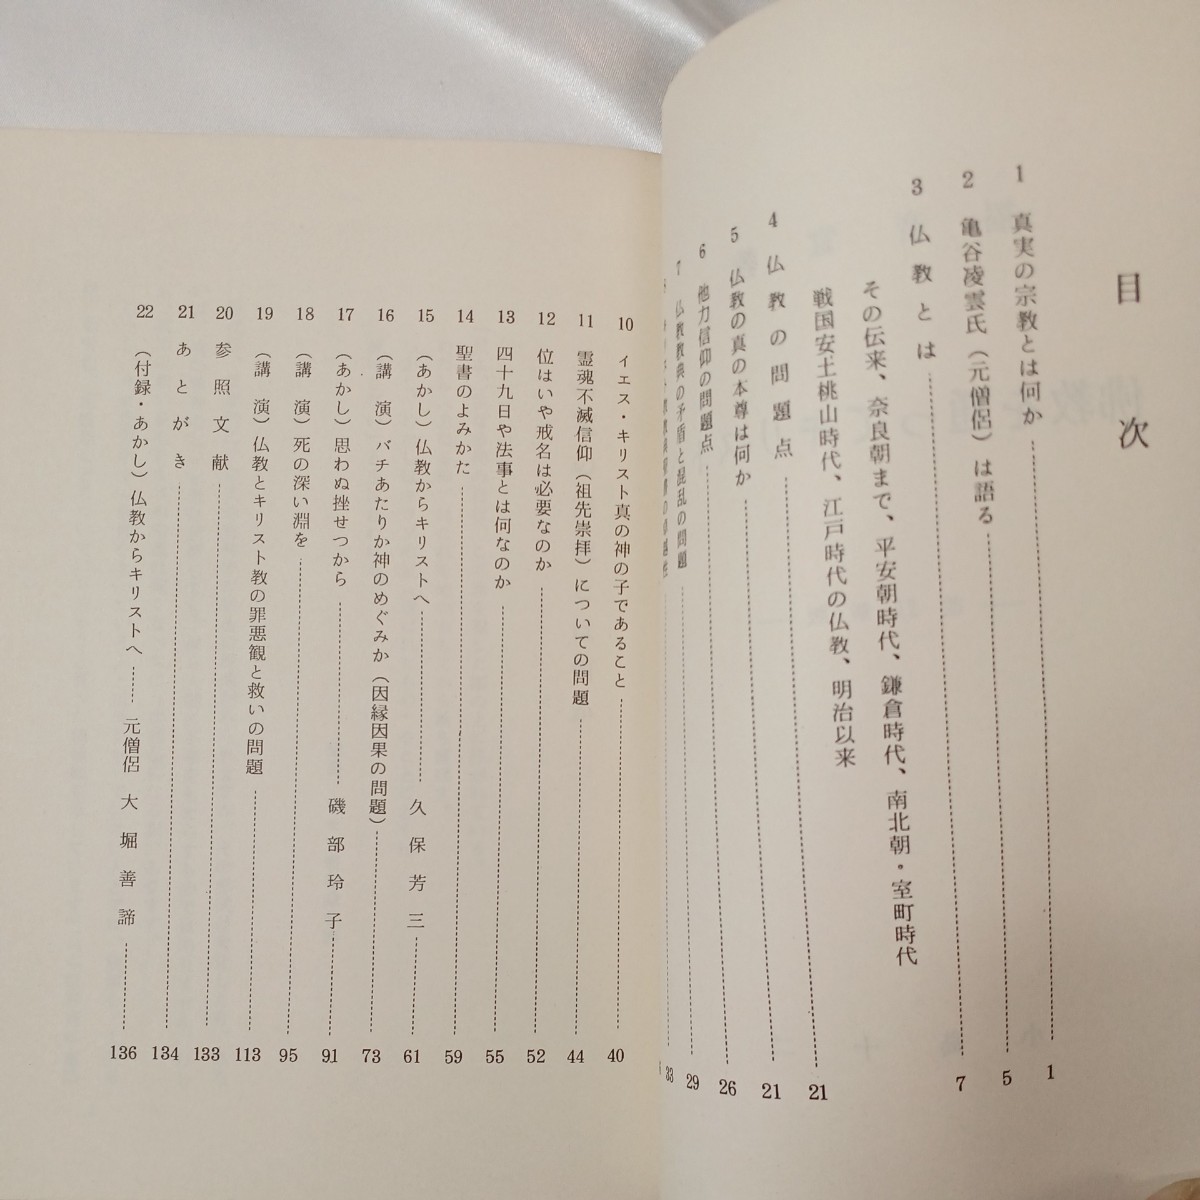 目次
1 真実の宗教とは何か 1
2 亀谷凌雲氏(元僧侶)は語る 5
3 仏教とは 7
その伝来、奈良朝まで、平安朝時代、鎌倉時代、南北朝・室町時代
戦国安土桃山時代、江戸時代の仏教、明治以来 21
4 仏教の問題点 21
5 仏教の真の本尊は何か 26
6 他力信仰の問題点 29
7 仏教教典の矛盾と混乱の問題 33
10 イエス・キリスト真の神の子であること 40
11 霊魂不滅信仰(祖先崇拝)についての問題 44
12 位はいや戒名は必要なのか 52
13 四十九日や法事とは何なのか 55
14 聖書のよみかた 59
15 (あかし)仏教からキリストへ 久保芳三 61
16 (講演)バチあたりか神のめぐみか(因縁因果の問題) 73
17 (あかし)思わぬ挫せつから 磯部玲子 91
18 (講演)死の深い淵を 95
19 (講演)仏教とキリスト教の罪悪観と救いの問題 113
20 参照文献 133
21 あとがき 134
22 (付録・あかし)仏教からキリストへ 元僧侶 大堀善諦 136